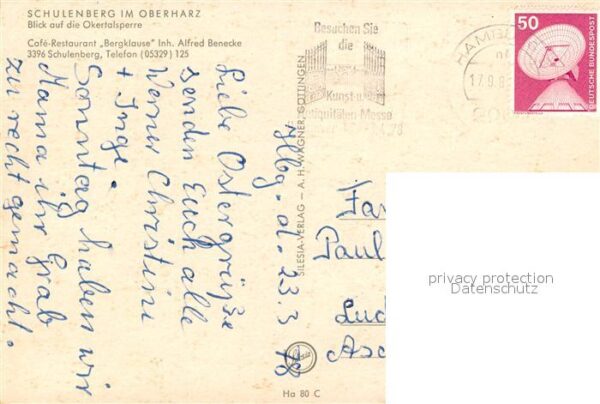 SCHULENBERG IM OBERHARZ
Blick auf die Okertalsperre
Café-Restaurant „Bergklause" Inh. Alfred Benecke
3396 Schulenberg, Telefon (05329) 125
Hbg. d. 23.3.78
Liebe Ostergrüße
senden Euch alle
Werner Christine
+ Inge.
Sonntag haben wir
Mama ihr Grab
zu recht gemacht.
SILESIA-VERLAG – A. H. WAGNER, GÖTTINGEN
Ha 80 C
Besuchen Sie
die
Kunst-u.
Antiquitäten-Messe
HAMBURG
50
DEUTSCHE BUNDESPOST
Fa
Paul
Lud
Asc
privacy protection
Datenschutz